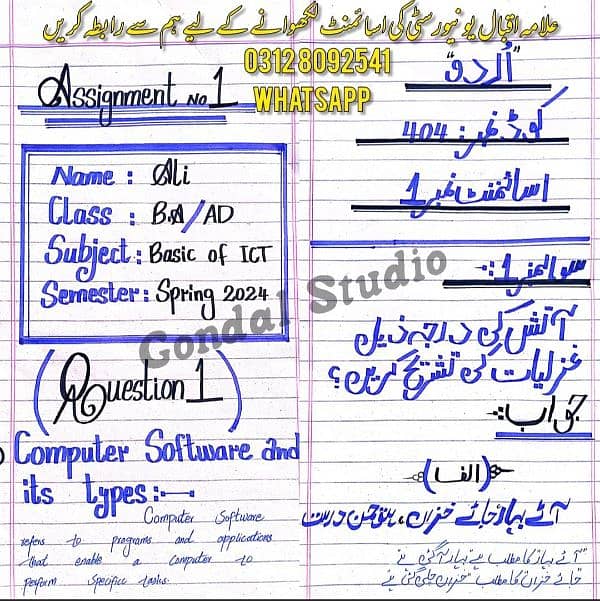 علامہ اقبال یونیورسٹی کی اسائمنٹ لکھوانے کے لیے ہم سے رابطہ کریں
03128092541
WHATSAPP
Assignment No 1
Name : Ali
Class : B.A/AD
Subject : Basic of ICT
Semester : Spring 2024
Question 1
Computer Software and
its types :-
Computer Software
refers to programs and applications
that enable a computer to
perform specific tasks.
"اُردو"
کوڈ نمبر : 404
اسائمنٹ نمبر 1
سوال نمبر 1 :-
آتش کی درجہ ذیل
غزلیات کی تشریح کریں؟
جواب :-
(الف)
آئے بہار جائے خزاں، ہو چمن درست
"آئے بہار کا مطلب ہے بہار آ گئی ہے
جائے خزاں کا مطلب "خزاں چلی گئی ہے
Gondal Studio